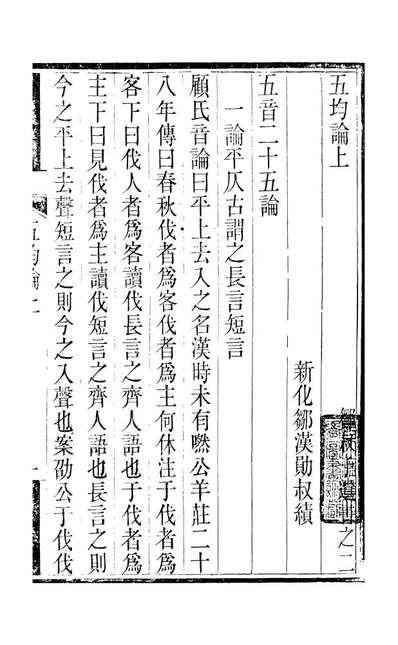 五均論上
鄒叔子遺書之二
新化鄒漢勛叔績
五音二十五論
一論平仄古謂之長言短言
顧氏音論曰平上去入之名漢時未有嘫公羊莊二十
八年傳曰春秋伐者爲客伐者爲主何休注于伐者爲
客下曰伐人者爲客讀伐長言之齊人語也于伐者爲
主下曰見伐者爲主讀伐短言之齊人語也長言之則
今之平上去聲短言之則今之入聲也案劭公于伐伐
五均論上
一